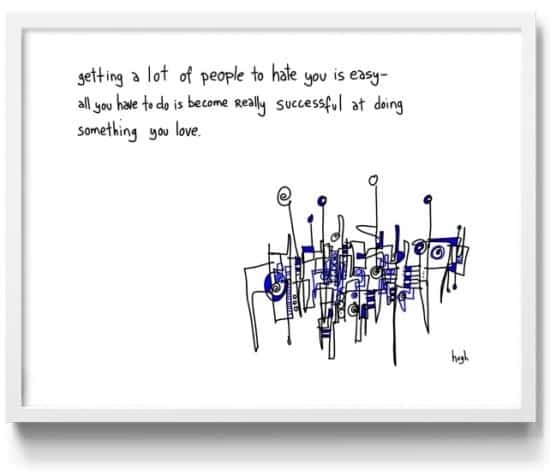 getting a lot of people to hate you is easy-
all you have to do is become really successful at doing
something you love.
hugh